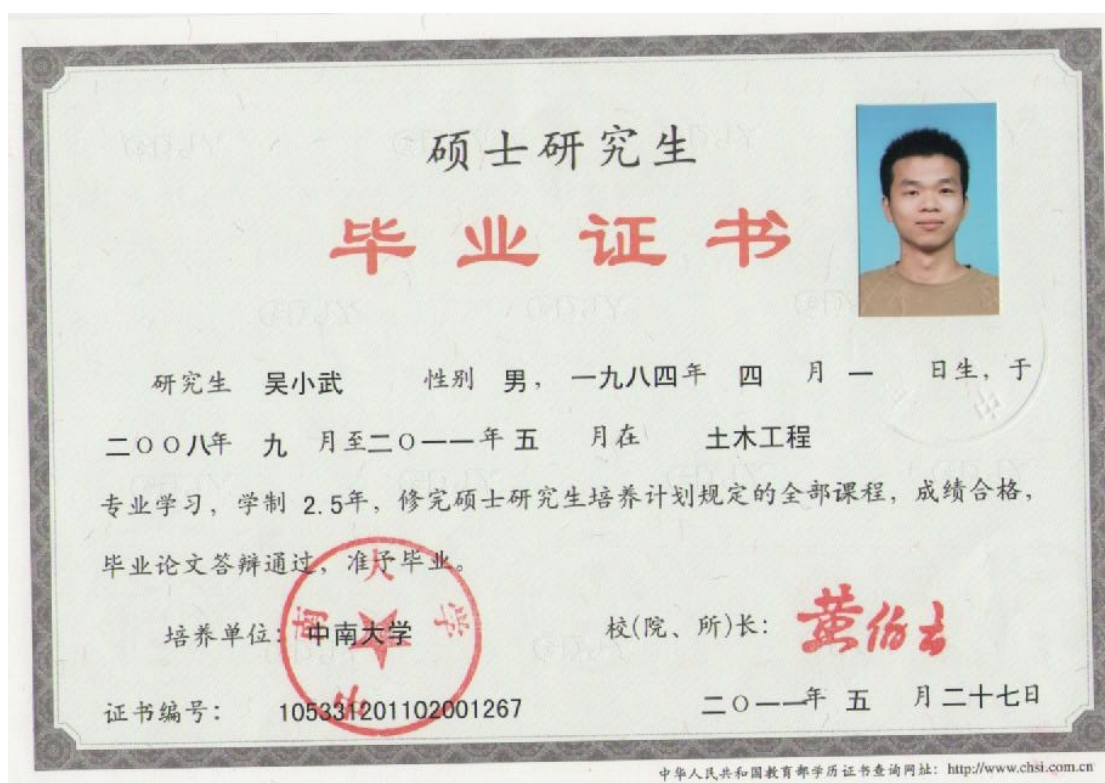 硕士研究生
毕业证书
研究生 吴小武 性别 男, 一九八四年 四 月 一 日生, 于
二〇〇八年 九 月至二〇一一年 五 月在 土木工程
专业学习, 学制 2.5年, 修完硕士研究生培养计划规定的全部课程, 成绩合格,
毕业论文答辩通过, 准予毕业。
培养单位: 中南大学 校(院、所)长: 黄伯云
中南大学
证书编号: 105331201102001267 二〇一一年 五 月二十七日
中华人民共和国教育部学历证书查询网址: http://www.chsi.com.cn